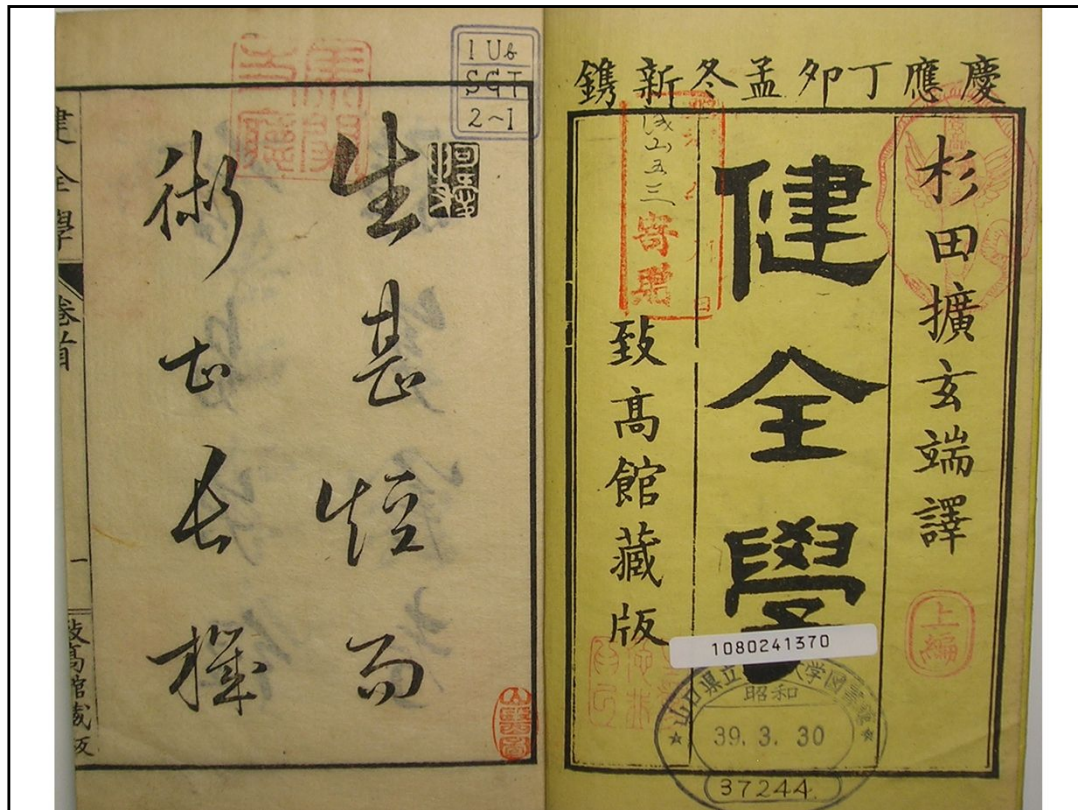 慶應丁卯孟冬新鐫
杉田擴玄端譯
上編
健全學
致高館藏版
寄贈
1080241370
昭和
39. 3. 30
37244
1 Ub
SGT
2~1
生甚短而
術甚長機
健全學 卷首 一 致高館藏版